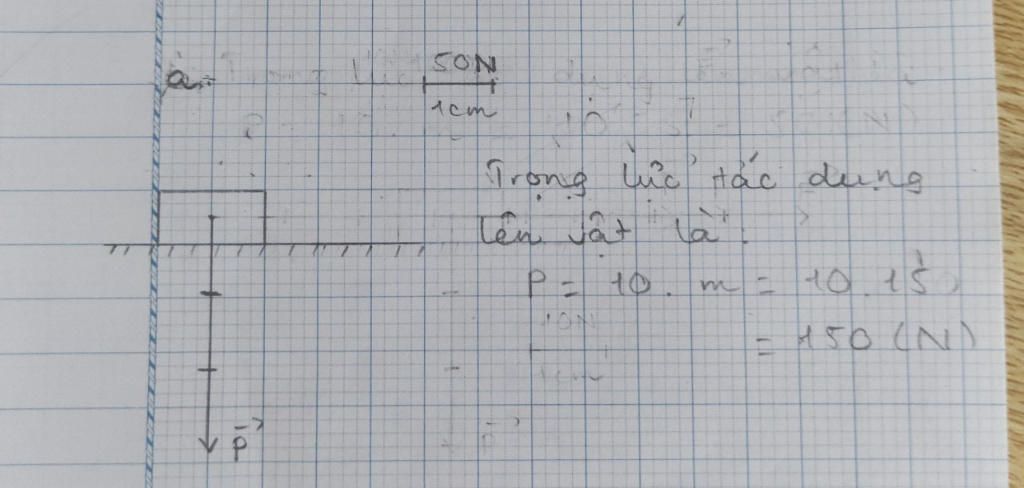 a.
50N
1cm
Trọng lực tác dụng
lên vật là:
P = 10 . m = 10 . 15
= 150 (N)
P⃗